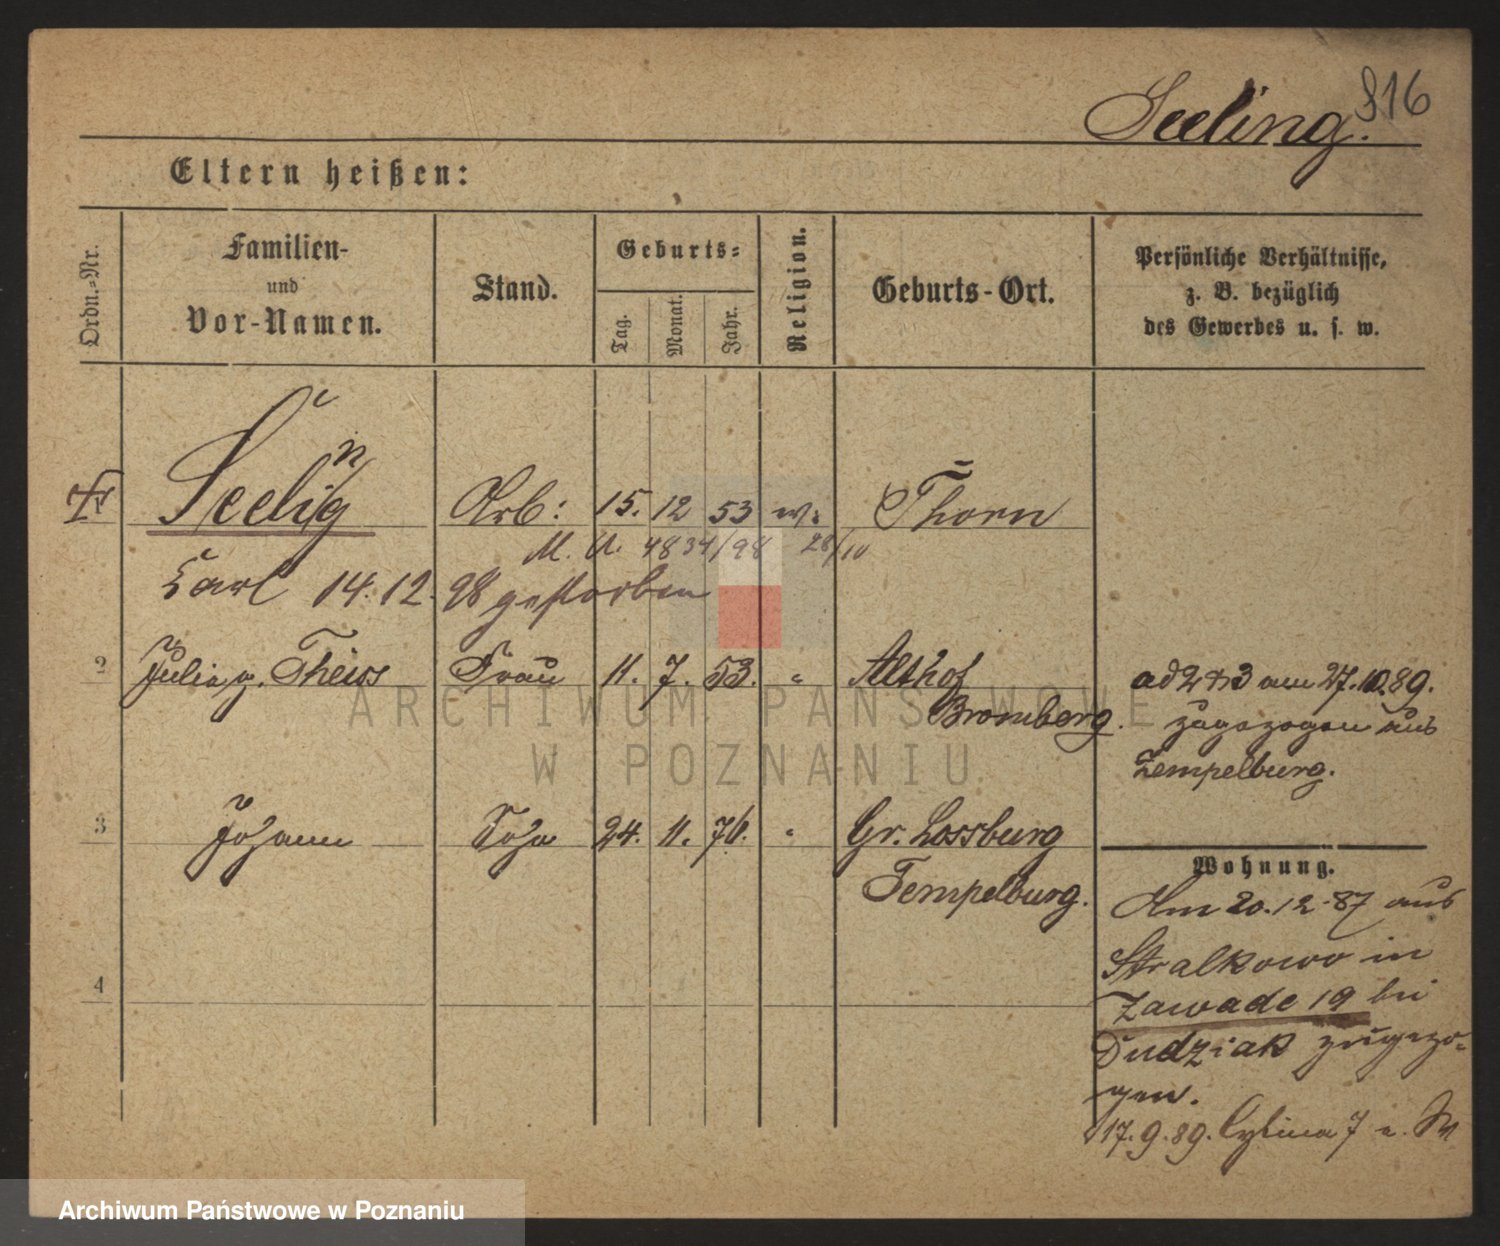 816
Seeling.
Eltern heißen:
Ordn.-Nr.
Familien-
und
Vor-Namen.
Stand.
Geburts-
Tag.
Monat.
Jahr.
Religion.
Geburts-Ort.
Persönliche Verhältnisse,
z. B. bezüglich
des Gewerbes u. s. w.
n
Seelig Arb: 15. 12 53 Thorn
M. A. 4834/98 28/10
Carl 14.12. 98 gestorben
2 Julia, g. Theiss Frau 11. 7. 53. " Althof
Bromberg.
ad 2 & 3 am 27.10.89.
zugezogen aus
Zempelburg.
3 Johann Sohn 24. 11. 76. " Gr. Lossburg
Tempelburg.
4
Wohnung.
Am 20.12.87 aus
Stralkowo in
Zawade 19 bei
Dudziak zugezo-
gen.
17.9.89. 7
ARCHIWUM PAŃSTWOWE
W POZNANIU
Archiwum Państwowe w Poznaniu